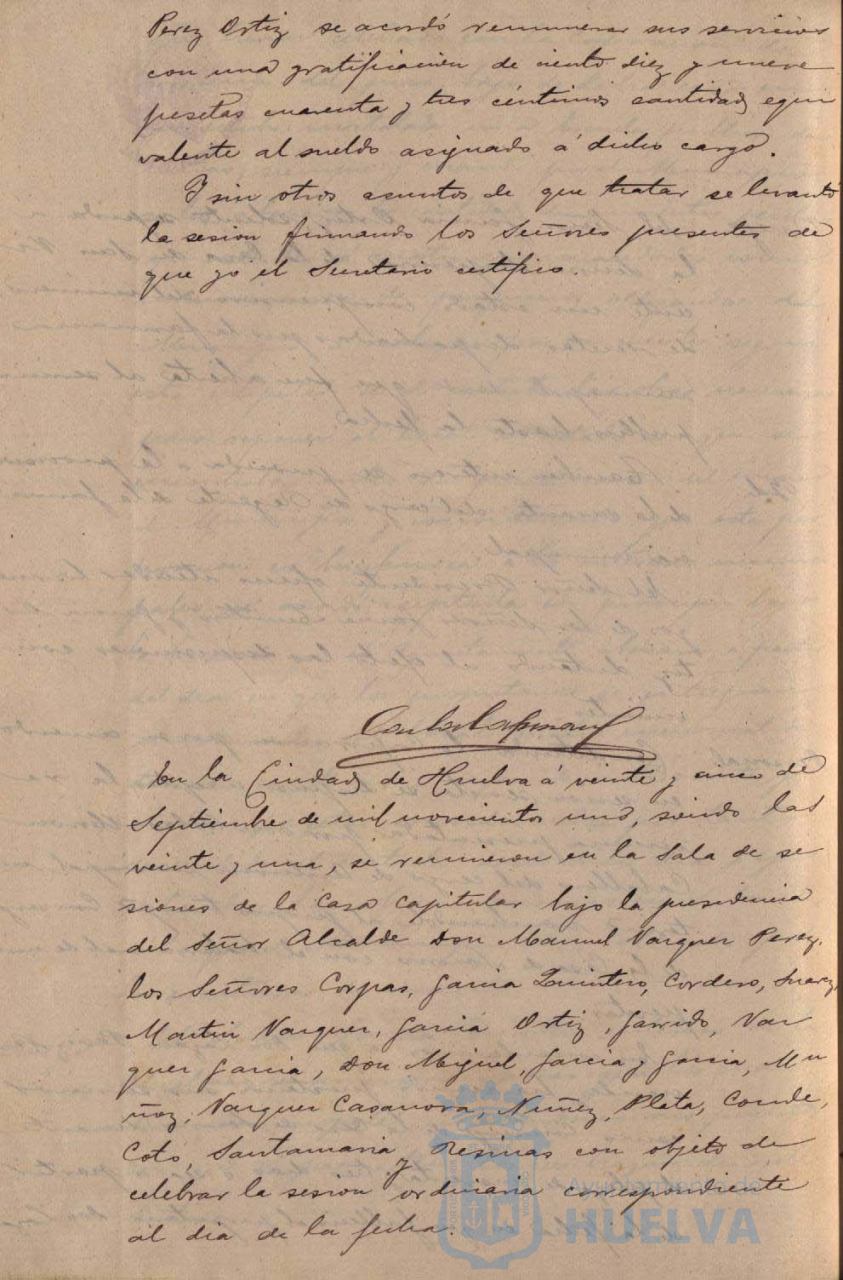 Perez Ortiz se acordó remunerar sus servicios
con una gratificación de ciento diez y nueve
pesetas cuarenta y tres céntimos cantidad equi
valente al sueldo asignado á dicho cargo.
Y sin otros asuntos de que tratar se levantó
la sesion firmando los Señores presentes de
que yo el Secretario certifico.
En la Ciudad de Huelva á veinte y cinco de
Septiembre de mil novecientos uno, siendo las
veinte y una, se reunieron en la Sala de se
siones de la Casa Capitular bajo la presidencia
del Señor Alcalde Don Manuel Vazquez Perez,
los Señores Corpas, Garcia Quintero, Cordero, Suarez,
Martin Vazquez, Garcia Ortiz, Garrido, Vaz
quez Garcia, Don Miguel, Garcia y Garcia, Mu
ñoz, Vazquez Casanova, Nuñez, Plata, Conde,
Coto, Santamaria y Resinas con objeto de
celebrar la sesion ordinaria correspondiente
al dia de la fecha.
Ayuntamiento de
HUELVA